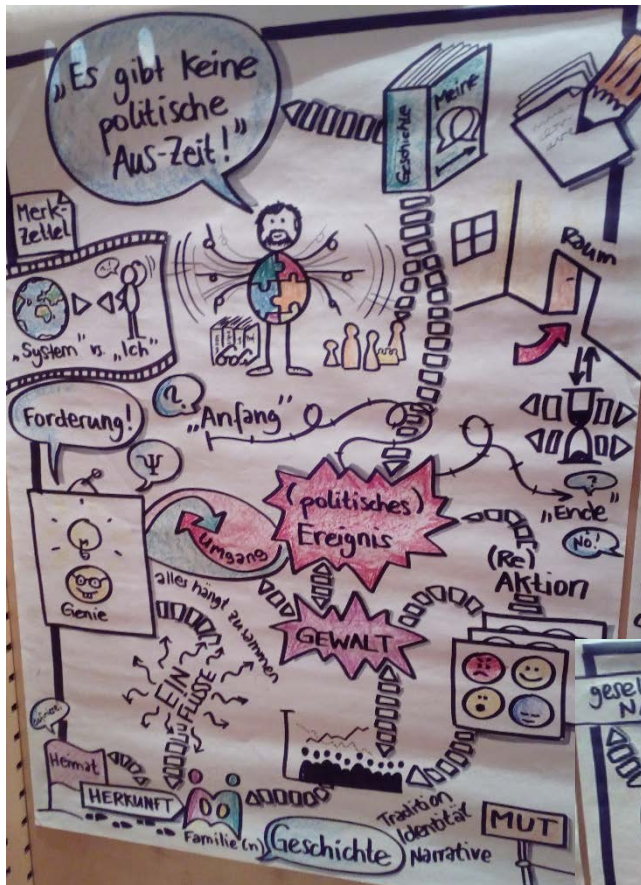 „Es gibt keine
politische
Aus-Zeit!"
Geschichte
Meine
Merk-
Zettel
„System" vs. „Ich"
Raum
Forderung!
?
„Anfang"
ψ
(politisches)
Ereignis
?
„Ende"
NO!
Umgang
(Re)
Aktion
Genie
alles hängt zusammen
GEWALT
EIN
FLÜSSE
Heimat
HERKUNFT
Familie(n)
Geschichte
Tradition
Identität
Narrative
MUT
gesel
N